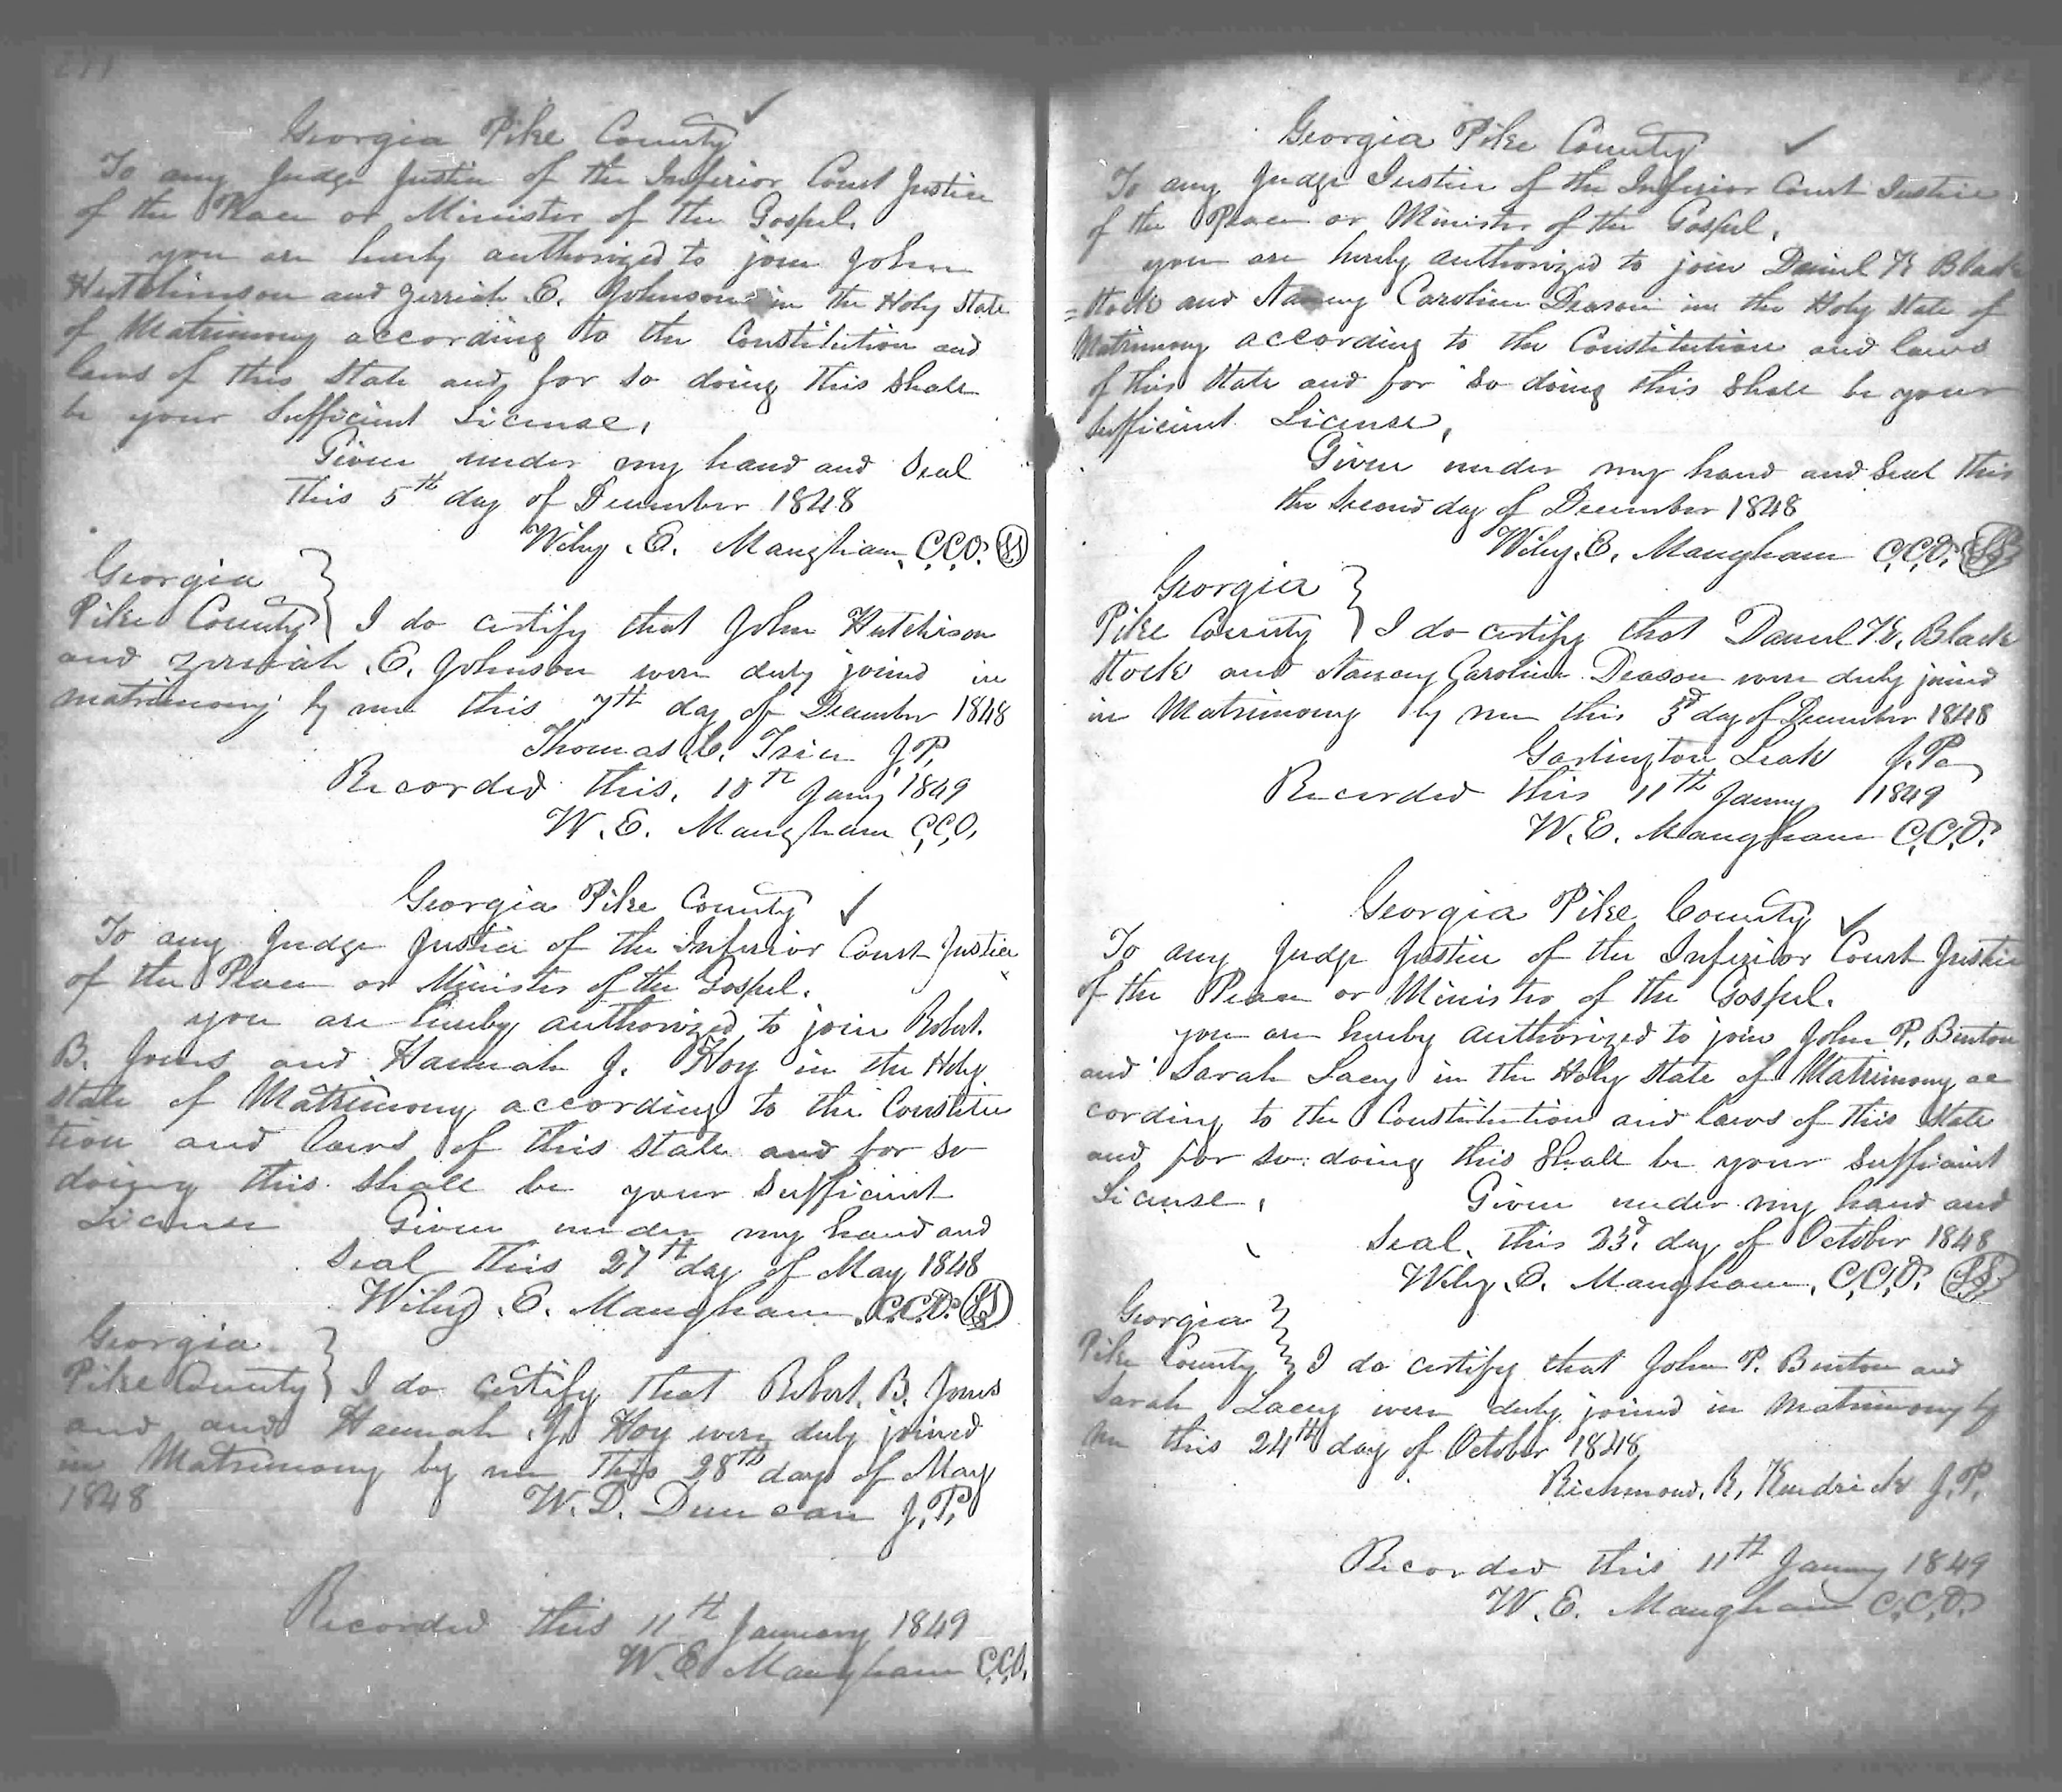 Georgia Pike County
To any Judge Justice of the Inferior Court Justice
of the Peace or Minister of the Gospel.
you are hereby authorized to join John
Hutchinson and Zerriah E. Johnson in the Holy State
of Matrimony according to the Constitution and
laws of this State and for so doing this shall
be your Sufficient License.
Given under my hand and Seal
this 5th day of December 1848
Wiley E. Mangham C.C.O. LS
Georgia
Pike County } I do certify that John Hutchison
and Zerriah E. Johnson were duly joined in
matrimony by me this 7th day of December 1848
Thomas C. J.P.
Recorded this, 10th Jany 1849
W. E. Mangham C.C.O.
Georgia Pike County
To any Judge Justice of the Inferior Court Justice
of the Peace or Minister of the Gospel.
you are hereby authorized to join Robert.
B. Jones and Hannah J. Hoy in the Holy
state of Matrimony according to the Constitu
tion and laws of this State and for so
doing this shall be your Sufficient
License Given under my hand and
Seal this 27th day of May 1848
Wiley E. Mangham C.C.O. LS
Georgia
Pike County } I do certify that Robert. B. Jones
and and Hannah J. Hoy were duly joined
in Matrimony by me this 28th day of May
1848 W. D. Duncan J.P.
Recorded this 11th January 1849
W. E. Mangham C.C.O.
Georgia Pike County
To any Judge Justice of the Inferior Court Justice
of the Peace or Minister of the Gospel.
you are hereby authorized to join Daniel K Black
=stock and Nancy Caroline Deason in the Holy State of
Matrimony according to the Constitution and laws
of this State and for so doing this shall be your
Sufficient License,
Given under my hand and Seal this
the Second day of December 1848
Wiley. E. Mangham C.C.O. LS
Georgia
Pike County } I do certify that Daniel K. Black
stock and Nancy Caroline Deason were duly joined
in Matrimony by me this 3d day of December 1848
Garlington Leak J.P.
Recorded this 11th Jany 1849
W. E. Mangham C.C.O.
Georgia Pike County
To any Judge Justice of the Inferior Court Justice
of the Peace or Minister of the Gospel.
you are hereby authorized to join John P. Benton
and Sarah Lacey in the Holy State of Matrimony ac
cording to the Constitution and laws of this State
and for so doing this Shall be your Sufficient
License, Given under my hand and
Seal, this 23d. day of October 1848
Wiley. E. Mangham, C.C.O. LS
Georgia
Pike County } I do certify that John P. Benton and
Sarah Lacey were duly joined in Matrimony by
me this 24th day of October 1848
Richmond. R. Kendrick J.P.
Recorded this 11th January 1849
W. E. Mangham C.C.O.